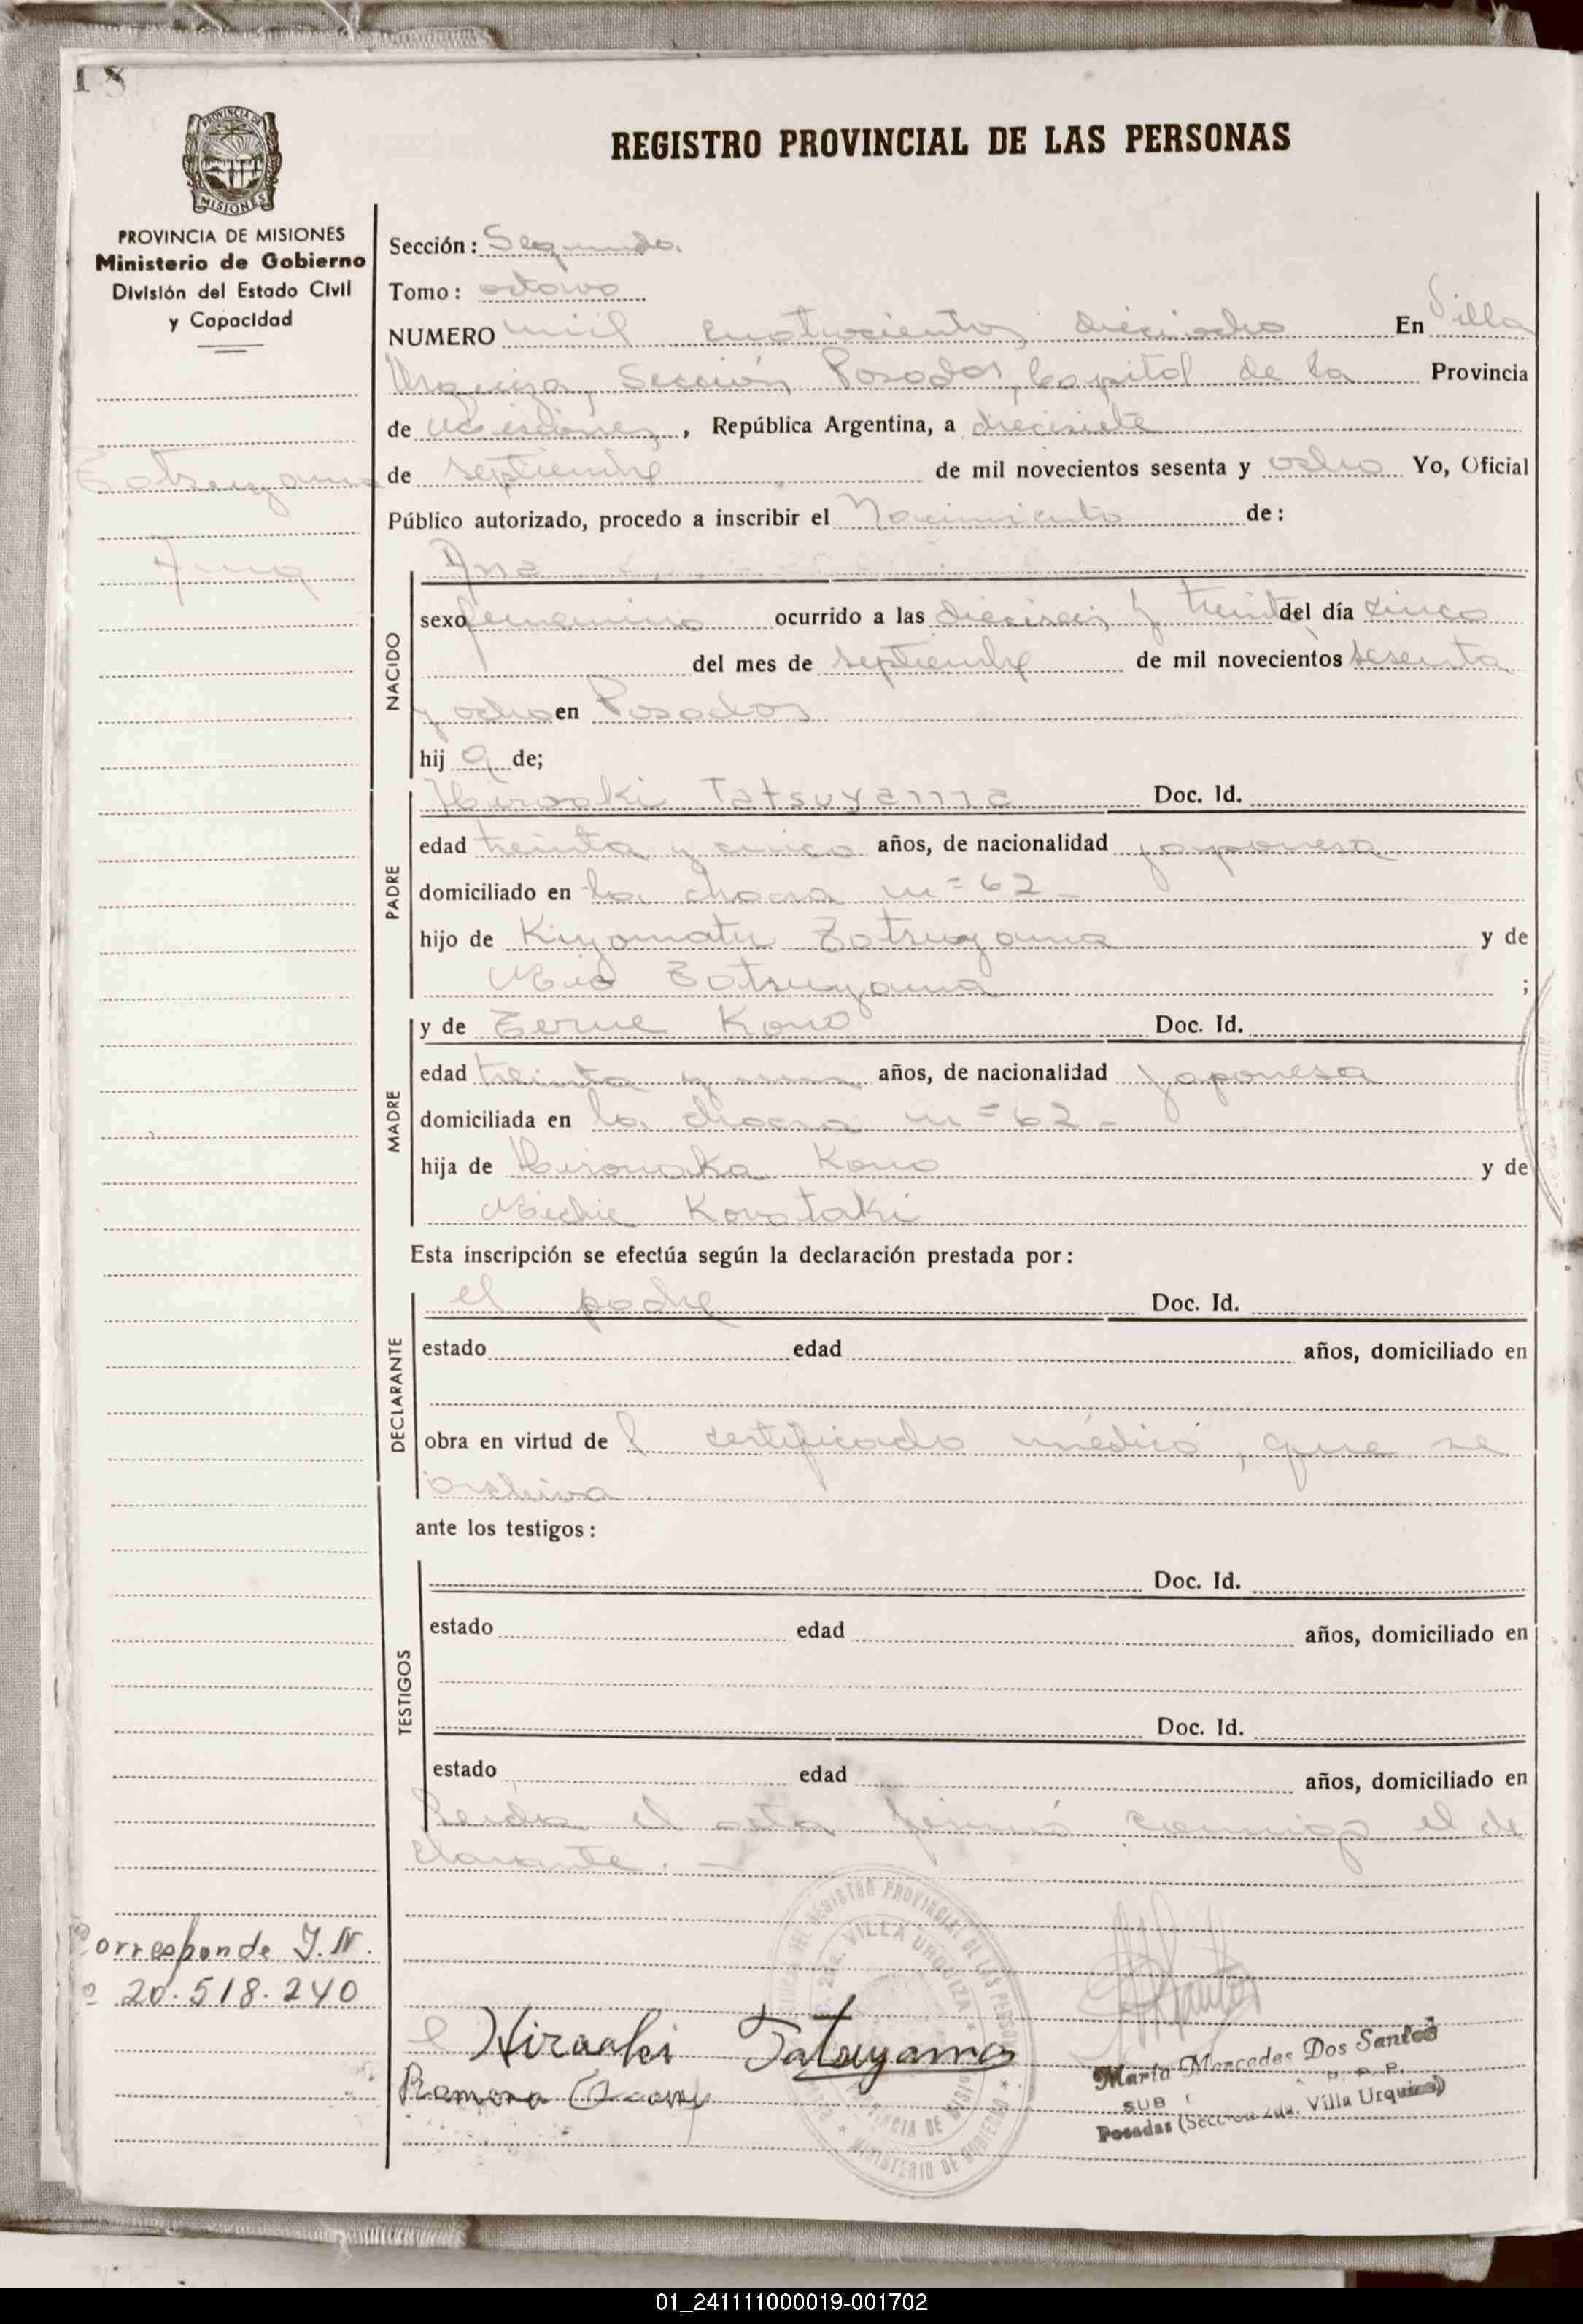 18
PROVINCIA DE MISIONES
REGISTRO PROVINCIAL DE LAS PERSONAS
PROVINCIA DE MISIONES
Ministerio de Gobierno
División del Estado Civil
y Capacidad
Sección: Segunda.
Tomo: octavo
NUMERO mil cuatrocientos dieciocho En Villa
Urquiza, Sección Posadas, Capital de la Provincia
de Misiones, República Argentina, a diecisiete
de septiembre de mil novecientos sesenta y ocho Yo, Oficial
Público autorizado, procedo a inscribir el Nacimiento de:
Tatsuyama
Ana
NACIDO
Ana
sexo femenino ocurrido a las dieciseis y treinta del día cinco
del mes de septiembre de mil novecientos sesenta
y ocho en Posadas
hija de;
PADRE
Hiroaki Tatsuyama Doc. Id.
edad treinta y cinco años, de nacionalidad japonesa
domiciliado en la chacra n=62-
hijo de Kiyomatu Tatsuyama y de
Mio Tatsuyama ;
MADRE
y de Terue Kono Doc. Id.
edad treinta y un años, de nacionalidad japonesa
domiciliada en la chacra n=62-
hija de Kono y de
Michie
Esta inscripción se efectúa según la declaración prestada por:
DECLARANTE
el padre Doc. Id.
estado edad años, domiciliado en
obra en virtud de l certificado médico, que se
archiva.
ante los testigos:
TESTIGOS
Doc. Id.
estado edad años, domiciliado en
Doc. Id.
estado edad años, domiciliado en
Leída el acta firmó conmigo el de
clarante. -
Corresponde I.N.
º 20.518.240
Hiroaki Tatsuyama
Ramona
REGISTRO PROVINCIAL DE LAS PERSONAS
2da. VILLA URQUIZA
PROVINCIA DE MISIONES
MINISTERIO DE GOBIERNO
María Mercedes Dos Santos
SUB
Posadas (Sección 2da. Villa Urquiza)
01_241111000019-001702